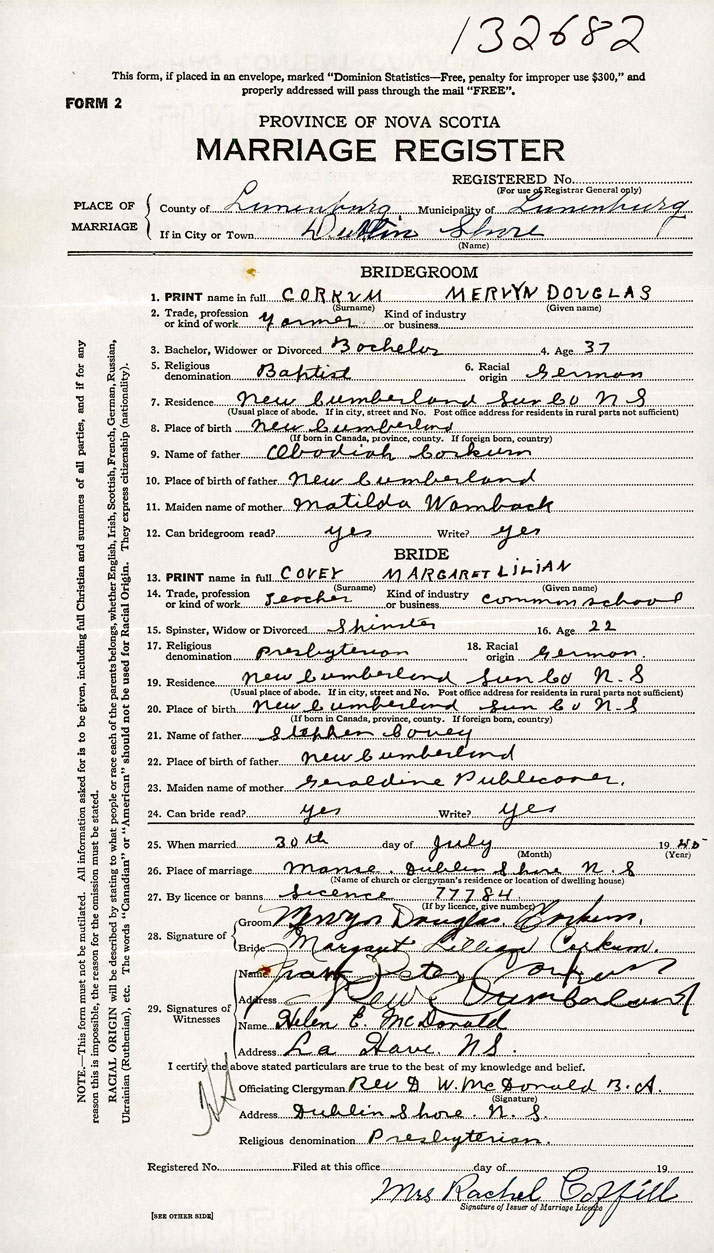 132682
This form, if placed in an envelope, marked “Dominion Statistics—Free, penalty for improper use $300,” and
properly addressed will pass through the mail “FREE”.
FORM 2
PROVINCE OF NOVA SCOTIA
MARRIAGE REGISTER
REGISTERED No.
(For use of Registrar General only)
PLACE OF MARRIAGE
County of Lunenburg Municipality of Lunenburg
If in City or Town Dublin Shore
(Name)
BRIDEGROOM
1. PRINT name in full CORKUM MERVYN DOUGLAS
(Surname) (Given name)
2. Trade, profession or kind of work Farmer Kind of industry or business
3. Bachelor, Widower or Divorced Bachelor 4. Age 37
5. Religious denomination Baptist 6. Racial origin German
7. Residence New Cumberland Lun Co N S
(Usual place of abode. If in city, street and No. Post office address for residents in rural parts not sufficient)
8. Place of birth New Cumberland
(If born in Canada, province, county. If foreign born, country)
9. Name of father Obadiah Corkum
10. Place of birth of father New Cumberland
11. Maiden name of mother Matilda Wamback
12. Can bridegroom read? yes Write? yes
BRIDE
13. PRINT name in full COVEY MARGARET LILIAN
(Surname) (Given name)
14. Trade, profession or kind of work Teacher Kind of industry or business common school
15. Spinster, Widow or Divorced Spinster 16. Age 22
17. Religious denomination Presbyterian 18. Racial origin German.
19. Residence New Cumberland Lun Co N-S
(Usual place of abode. If in city, street and No. Post office address for residents in rural parts not sufficient)
20. Place of birth New Cumberland Lun Co N-S
(If born in Canada, province, county. If foreign born, country)
21. Name of father Stephen Covey
22. Place of birth of father New Cumberland
23. Maiden name of mother Geraldine Publicover.
24. Can bride read? yes Write? yes
25. When married 30th day of July 1940
(Month) (Year)
26. Place of marriage Manse. Dublin Shore N. S
(Name of church or clergyman's residence or location of dwelling house)
27. By licence or banns Licence 77784.
(If by licence, give number)
28. Signature of
Groom Mervyn Douglas Corkum.
Bride Margaret Lillian Corkum.
29. Signatures of Witnesses
Name Corkum
Address New Cumberland
Name Helen E. McDonald
Address La Have. N.S.
I certify the above stated particulars are true to the best of my knowledge and belief.
Officiating Clergyman Rev D. W. McDonald B.A.
(Signature)
Address Dublin Shore. N. S.
Religious denomination Presbyterian.
Registered No. Filed at this office day of 19
Mrs Rachel Coffill
Signature of Issuer of Marriage Licence
[SEE OTHER SIDE]
NOTE.—This form must not be mutilated. All information asked for is to be given, including full Christian and surnames of all parties, and if for any
reason this is impossible, the reason for the omission must be stated.
RACIAL ORIGIN will be described by stating to what people or race each of the parents belongs, whether English, Irish, Scottish, French, German, Russian,
Ukrainian (Ruthenian), etc. The words “Canadian” or “American” should not be used for Racial Origin. They express citizenship (nationality).